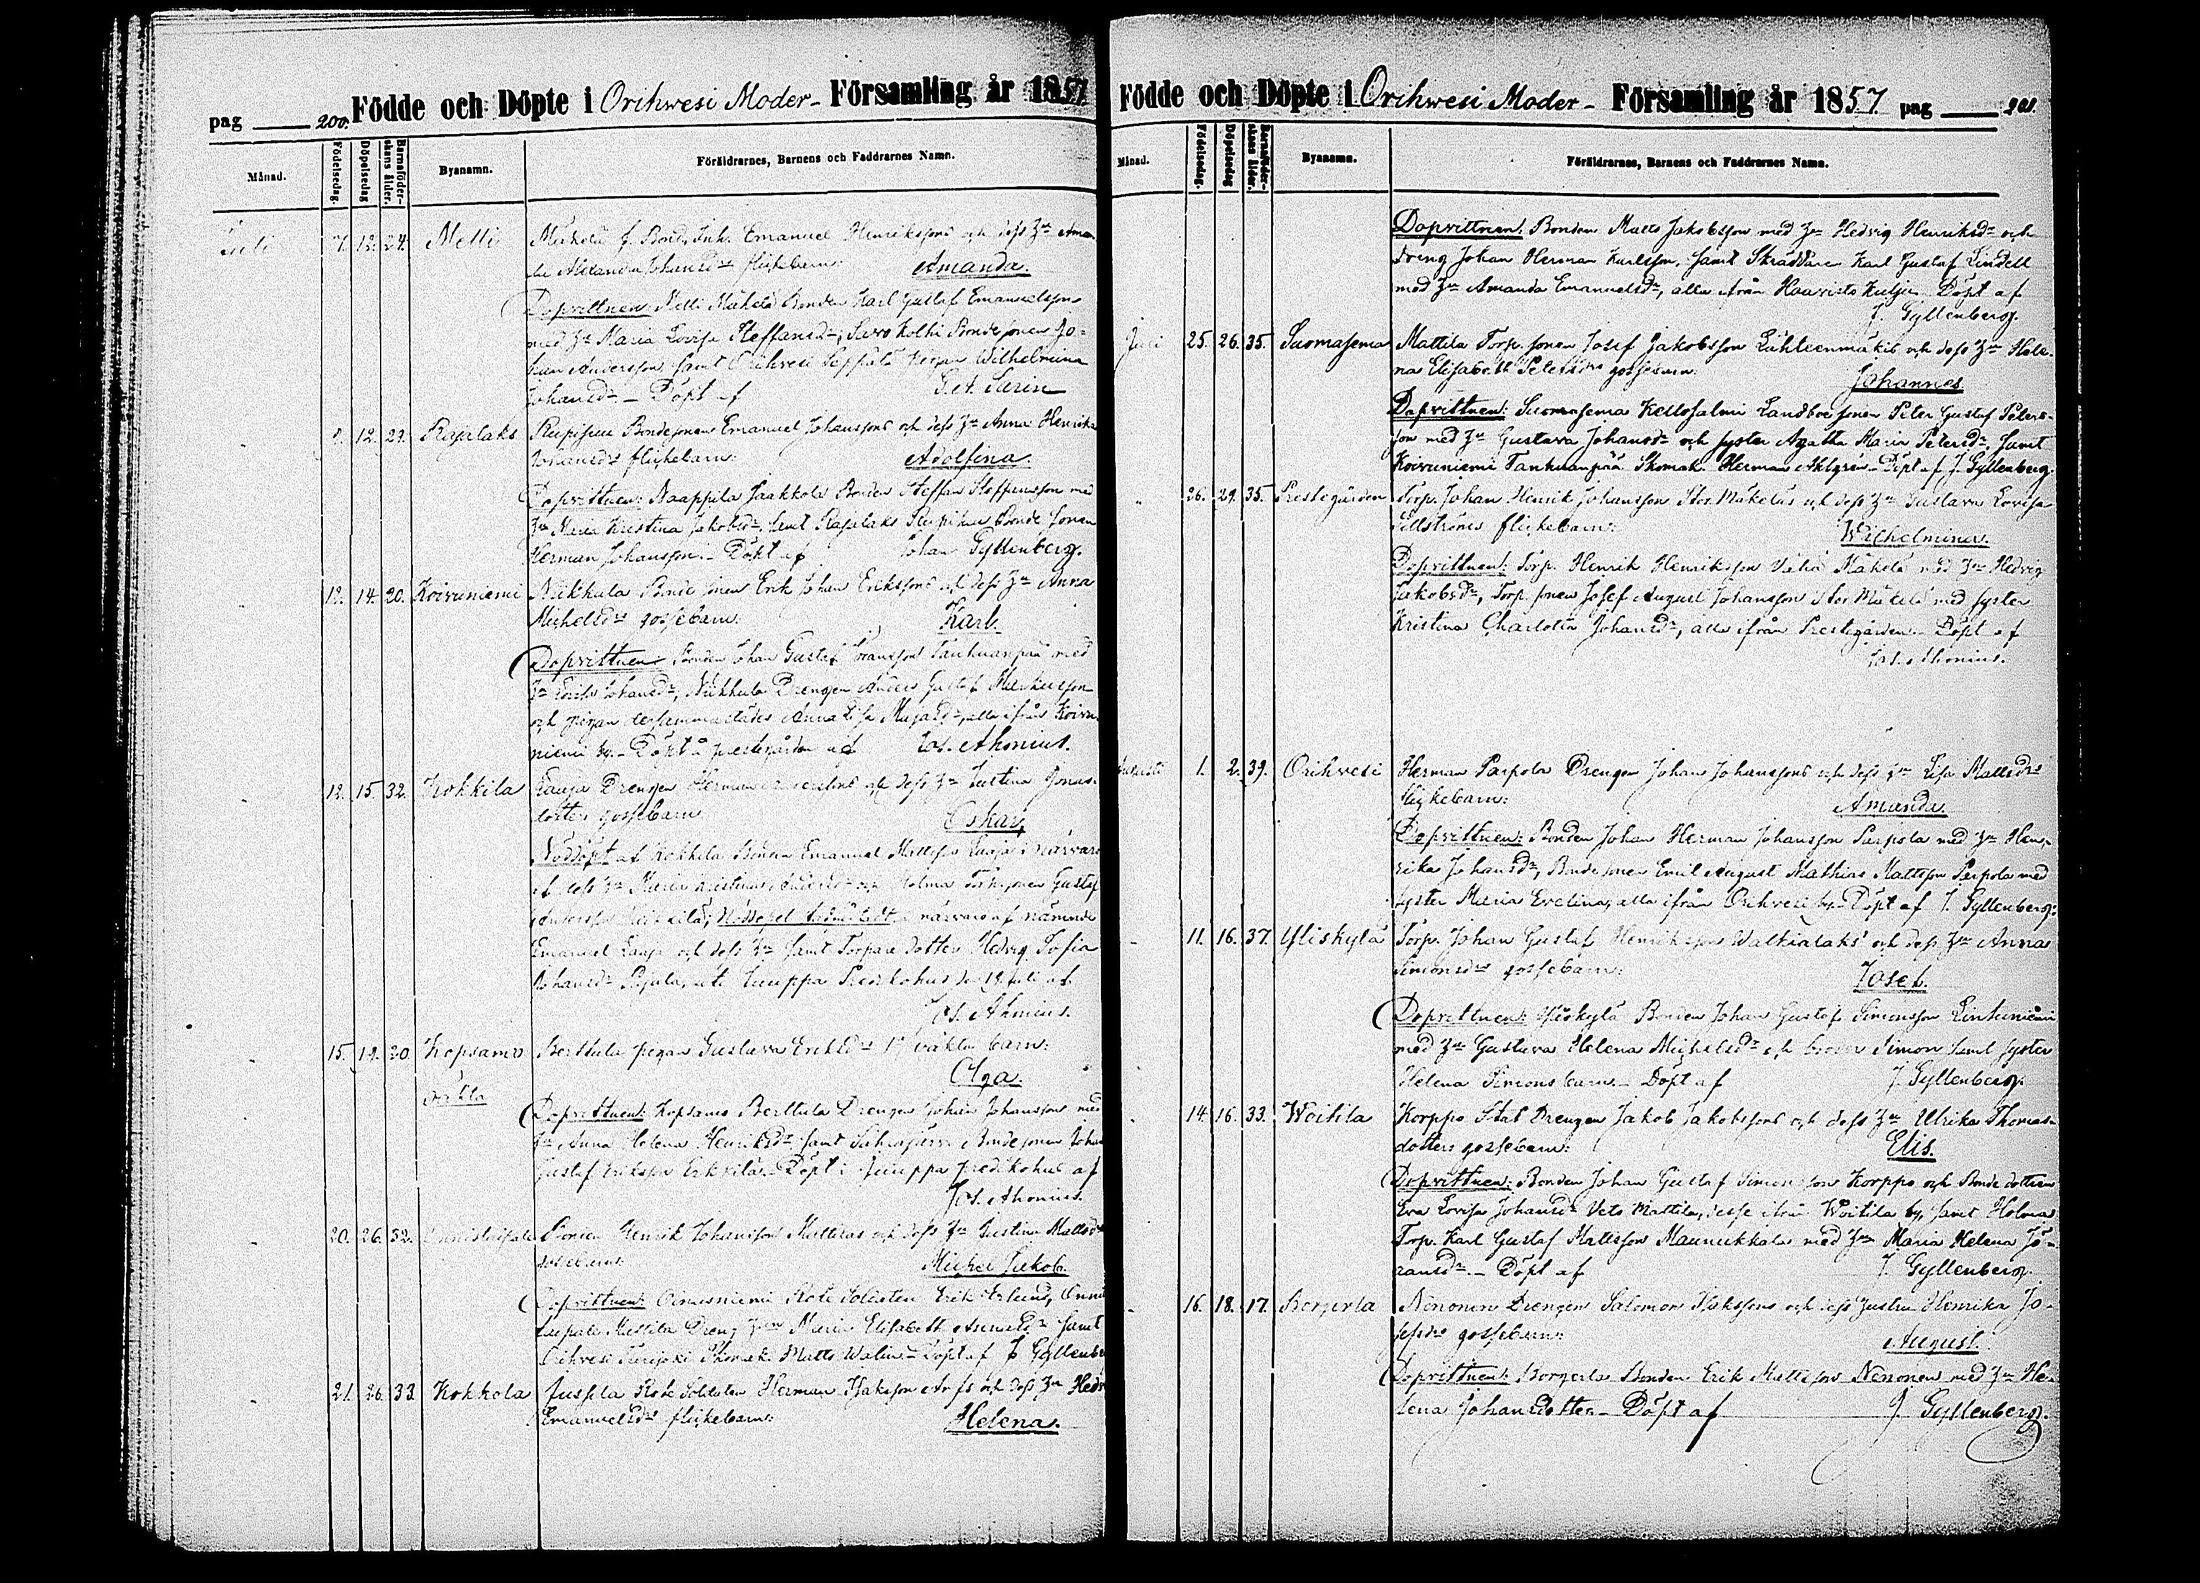 pag 200. Födde och Döpte i Orihwesi Moder- Församling år 1857
Månad. Födelsedag. Döpelsedag Barnaföder-skans ålder. Byanamn. Föräldrarnes, Barnens och Faddrarnes Namn.
Juli 7. 12. 24. Metti Mäkelä f. Bond. Inh. Emanuel Henrikssons och dess Hu Aman-
da Alexandra Johansdrs flickebarn: Amanda.
Dopvittnen: Metti Mäkelä Bonden Karl Gustaf Emanuelsson
med Hu Maria Lovisa Steffansdr, Savo Kolhi Bondesonen Jo-
han Andersson, samt Orihvesi Seppälä Wilhelmina
Johansdr – Döpt af
12. 29. Rajalaks Bondesonen Emanuel Johanssons och dess Hu Anna Henrika
Johansdrs flickebarn: Adolfina.
Dopvittnen: Naappila Jaakkola Bonden Steffan Steffansson med
Hu Maria Kristina Jakobsdr, samt Rajalaks Bonde sonen
Herman Johansson. – Döpt af Johan Gyllenberg.
12. 14. 20. Koivuniemi Nikkula Bonde sonen Erik Johan Erikssons och dess Hu Anna
Michelsdrs gossebarn: Karl.
Dopvittnen: Bonden Johan Gustaf Göransson Tankuanpää med
Hu Johansdr, Nikkula Drengen Anders Gustaf Markusson
och pigan Anna Lisa alla ifrån Koivu-
niemi by. – Döpt å prestegården af Jos. Ahonius.
12. 15. 32. Kokkila Drengen Herman och dess Hu Justina Jonas-
dotters gossebarn Oskar,
Nöddöpt af Kokkila Bonden Emanuel Mattsson i närvaro
af dess Hu Maria Kristina och Holma Gustaf
i närvaro af nämnde
Emanuel och dess Hu samt Torpare dotter Hedvig Sofia
Johansdr den 18 Juli af
Jos. Ahonius.
15. 19. 20 Kopsamo Berttula pigan Gustava Eriksdrs barn:
Olga.
Dopvittnen: Kopsamo Berttula Drengen Johan Johansson med
Hu Anna Helena Henriksdr samt Bondesonen Johan
Gustaf Eriksson Erkkilä. – Döpt i Juuppa predikohus af
Jos. Ahonius.
20. 26. 32. Bonden Henrik Johansson och dess Hu Justina Mattsdrs
gossebarn: Michel Jakob.
Dopvittnen: Rote Soldaten Erik
Mattila Dreng Hun Maria Elisabeth samt
Orihvesi Skomak. Matts Walin – Döpt af J. Gyllenberg
21. 26. 33. Kokkola Jussila Rote Soldaten Herman Isaksson och dess Hu Hedvig
Emanuelsdrs flickebarn: Helena.
Födde och Döpte i Orihwesi Moder- Församling år 1857 pag 201.
Månad. Födelsedag. Döpelsedag Barnaföder-skans ålder. Byanamn. Föräldrarnes, Barnens och Faddrarnes Namn.
Dopvittnen: Bonden Matts Jakobsson med Hu Hedvig Henriksdr och
dreng Johan Herman Karlsson, samt Skräddare Karl Gustaf Lindell
med Hu Amanda Emanuelsdr, alla ifrån Haavisto Kulju. Döpt af
J. Gyllenberg.
Juli 25. 26. 35. Suomasema Mattila Torp. sonen Josef Jakobsson Lähteenmäkis och dess Hu Hele-
na Elisabeth Petersdrs gossebarn: Johannes
Dopvittnen: Suomasema Kellosalmi Landboesonen Peter Gustaf Peters-
son med Hu Gustava Johansdr och syster Agatha Maria Petersdr, samt
Koivuniemi Tankuanpää Skomak. Herman Ahlgren – Döpt af J. Gyllenberg.
" 26. 29. 35. Prestegården Torp. Johan Henrik Johansson Stor Mäkeläs och dess Hu Gustava Lovisa
Sillströms flickebarn: Wilhelmina.
Dopvittnen: Torp. Henrik Henriksson Väliä Mäkelä med Hu Hedvig
Jakobsdr, Torp. sonen Josef August Johansson Stor Mäkelä med syster
Kristina Charlotta Johansdr, alla ifrån Prestegården – Döpt af
Jos. Ahonius.
Augusti 1. 2. 39. Orihvesi Herman Parpola Drengen Johan Johanssons och dess Hu Lisa Mattsdrs
flickebarn: Amanda.
Dopvittnen: Bonden Johan Herman Johansson Parpola med Hu Hen-
rika Johansdr, Bonde sonen Emil August Mathias Mattsson Parpola med
syster Maria Evelina, alla ifrån Orihvesi by. – Döpt af J. Gyllenberg.
- 11. 16. 37. Yliskylä Torp. Johan Gustaf Henriksson Walkialaks' och dess Hu Anna
Simonsdrs gossebarn: Josef.
Dopvittnen: Yliskylä Bonden Johan Gustaf Simonsson Lintuniemi
med Hu Gustava Helena Michelsdr och broder Simon samt syster
Helena Simonsbarn. – Döpt af J. Gyllenberg.
- 14. 16. 33. Woitila Korppo Stat Drengen Jakob Jakobssons och dess Hu Ulrika Thomas-
dotters gossebarn: Elis.
Dopvittnen: Bonden Johan Gustaf Simonsson Korppo och Bonde dottren
Eva Lovisa Johansdr Veto Mattila, desse ifrån Woitila by, samt Holma
Torp. Karl Gustaf Mattsson Maunukkala med Hun Maria Helena Jö-
ransdr. – Döpt af J. Gyllenberg.
- 16. 18. 17. Borgerla Nenonen Drengen Salomon Isakssons och dess hustru Henrika Jo-
sefsdrs gossebarn: August.
Dopvittnen: Borgerla Bonden Erik Mattsson Nenonen med Hu He-
lena Johansdotter – Döpt af J. Gyllenberg.